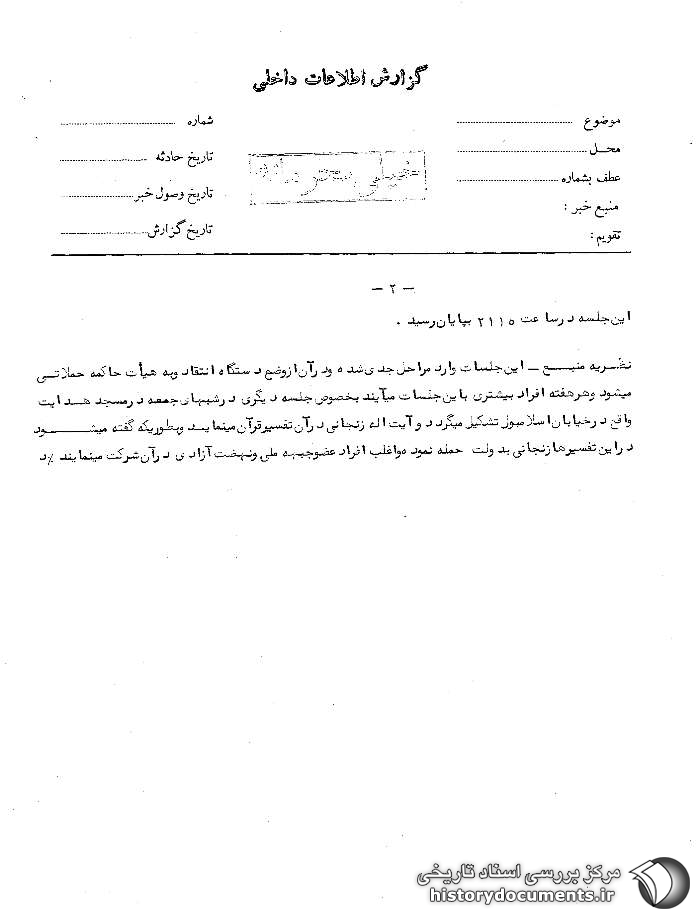 گزارش اطلاعات داخلی
موضوع
محـل
عطف بشماره
منبع خبر :
تقویم:
شماره
تاریخ حادثه
تاریخ وصول خبر
تاریخ گزارش
خیلی محرمانه
ـ ۲ ـ
این جلسه در ساعت ۲۱۱۵ بپایان رسید .
نظـریه منبـــع ـ این جلسات وارد مراحل جدی شده و در آن از وضع دستگاه انتقاد و به هیأت حاکمه حملاتــی
میشود و هر هفته افراد بیشتری باین جلسات میآیند بخصوص جلسه دیگری در شبهای جمعه در مسجد هـدایت
واقع در خیابان اسلامبول تشکیل میگردد و آیت اله زنجانی در آن تفسیر قرآن مینمایند و بطوریکه گفته میشـــــود
در این تفسیرها زنجانی بدولت حمله نموده و اغلب افراد عضو جبهه ملی و نهضت آزادی در آن شرکت مینمایند ٪د
مرکز بررسی اسناد تاریخی
historydocuments.ir